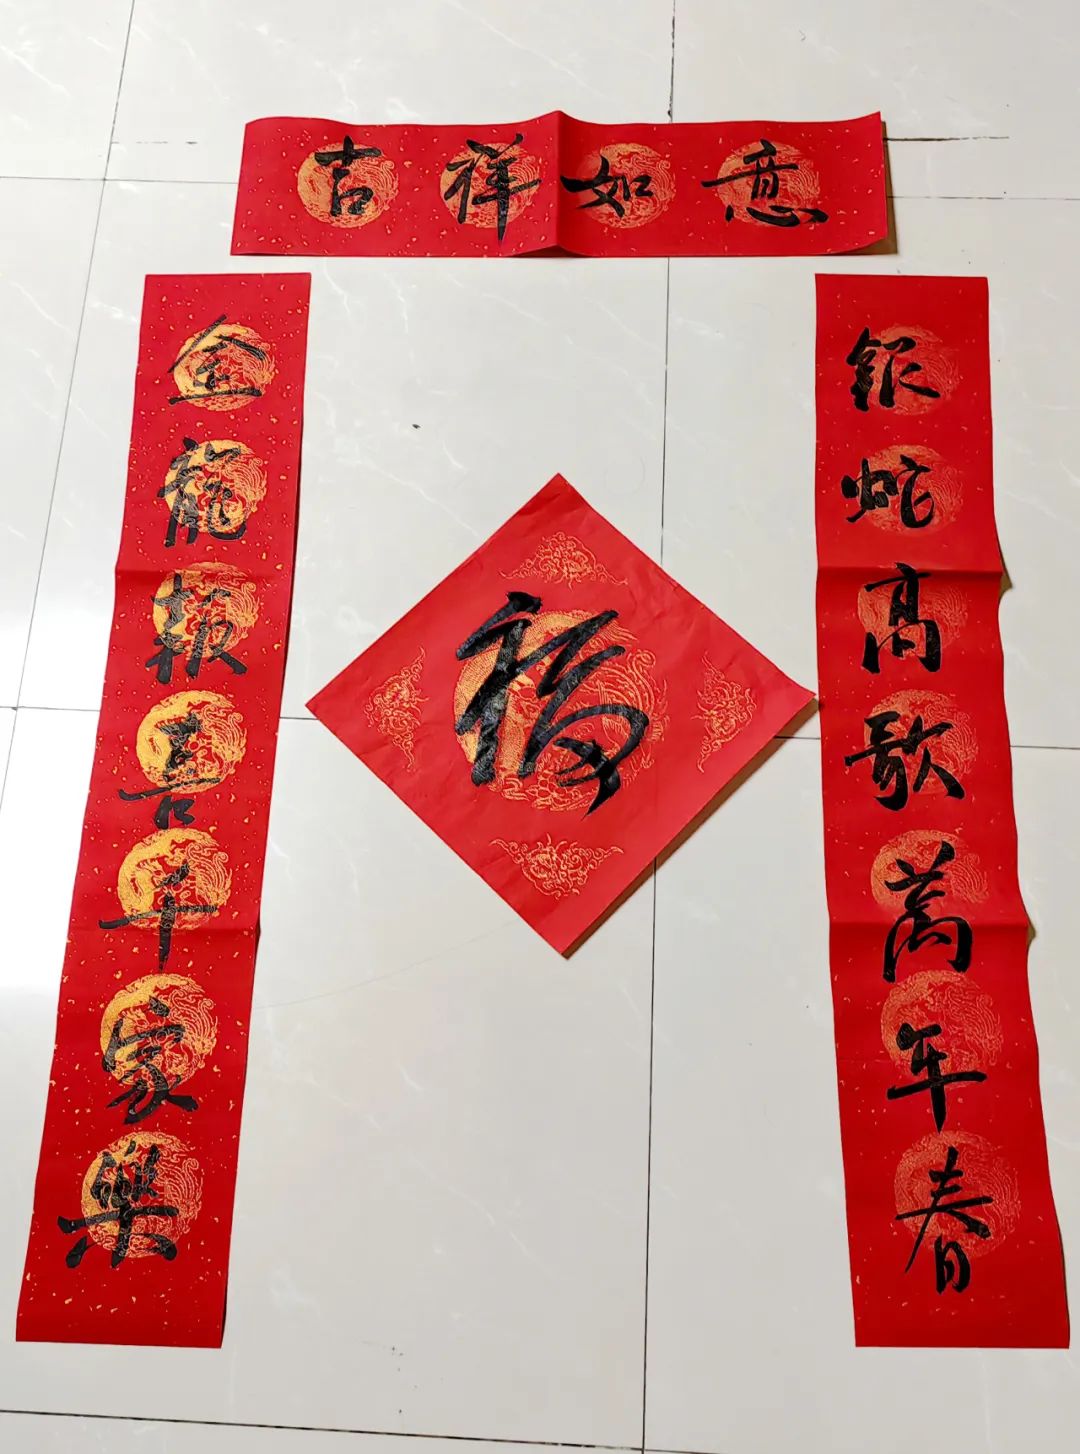 吉祥如意
金龍報喜千家樂
銀蛇高歌萬年春
福